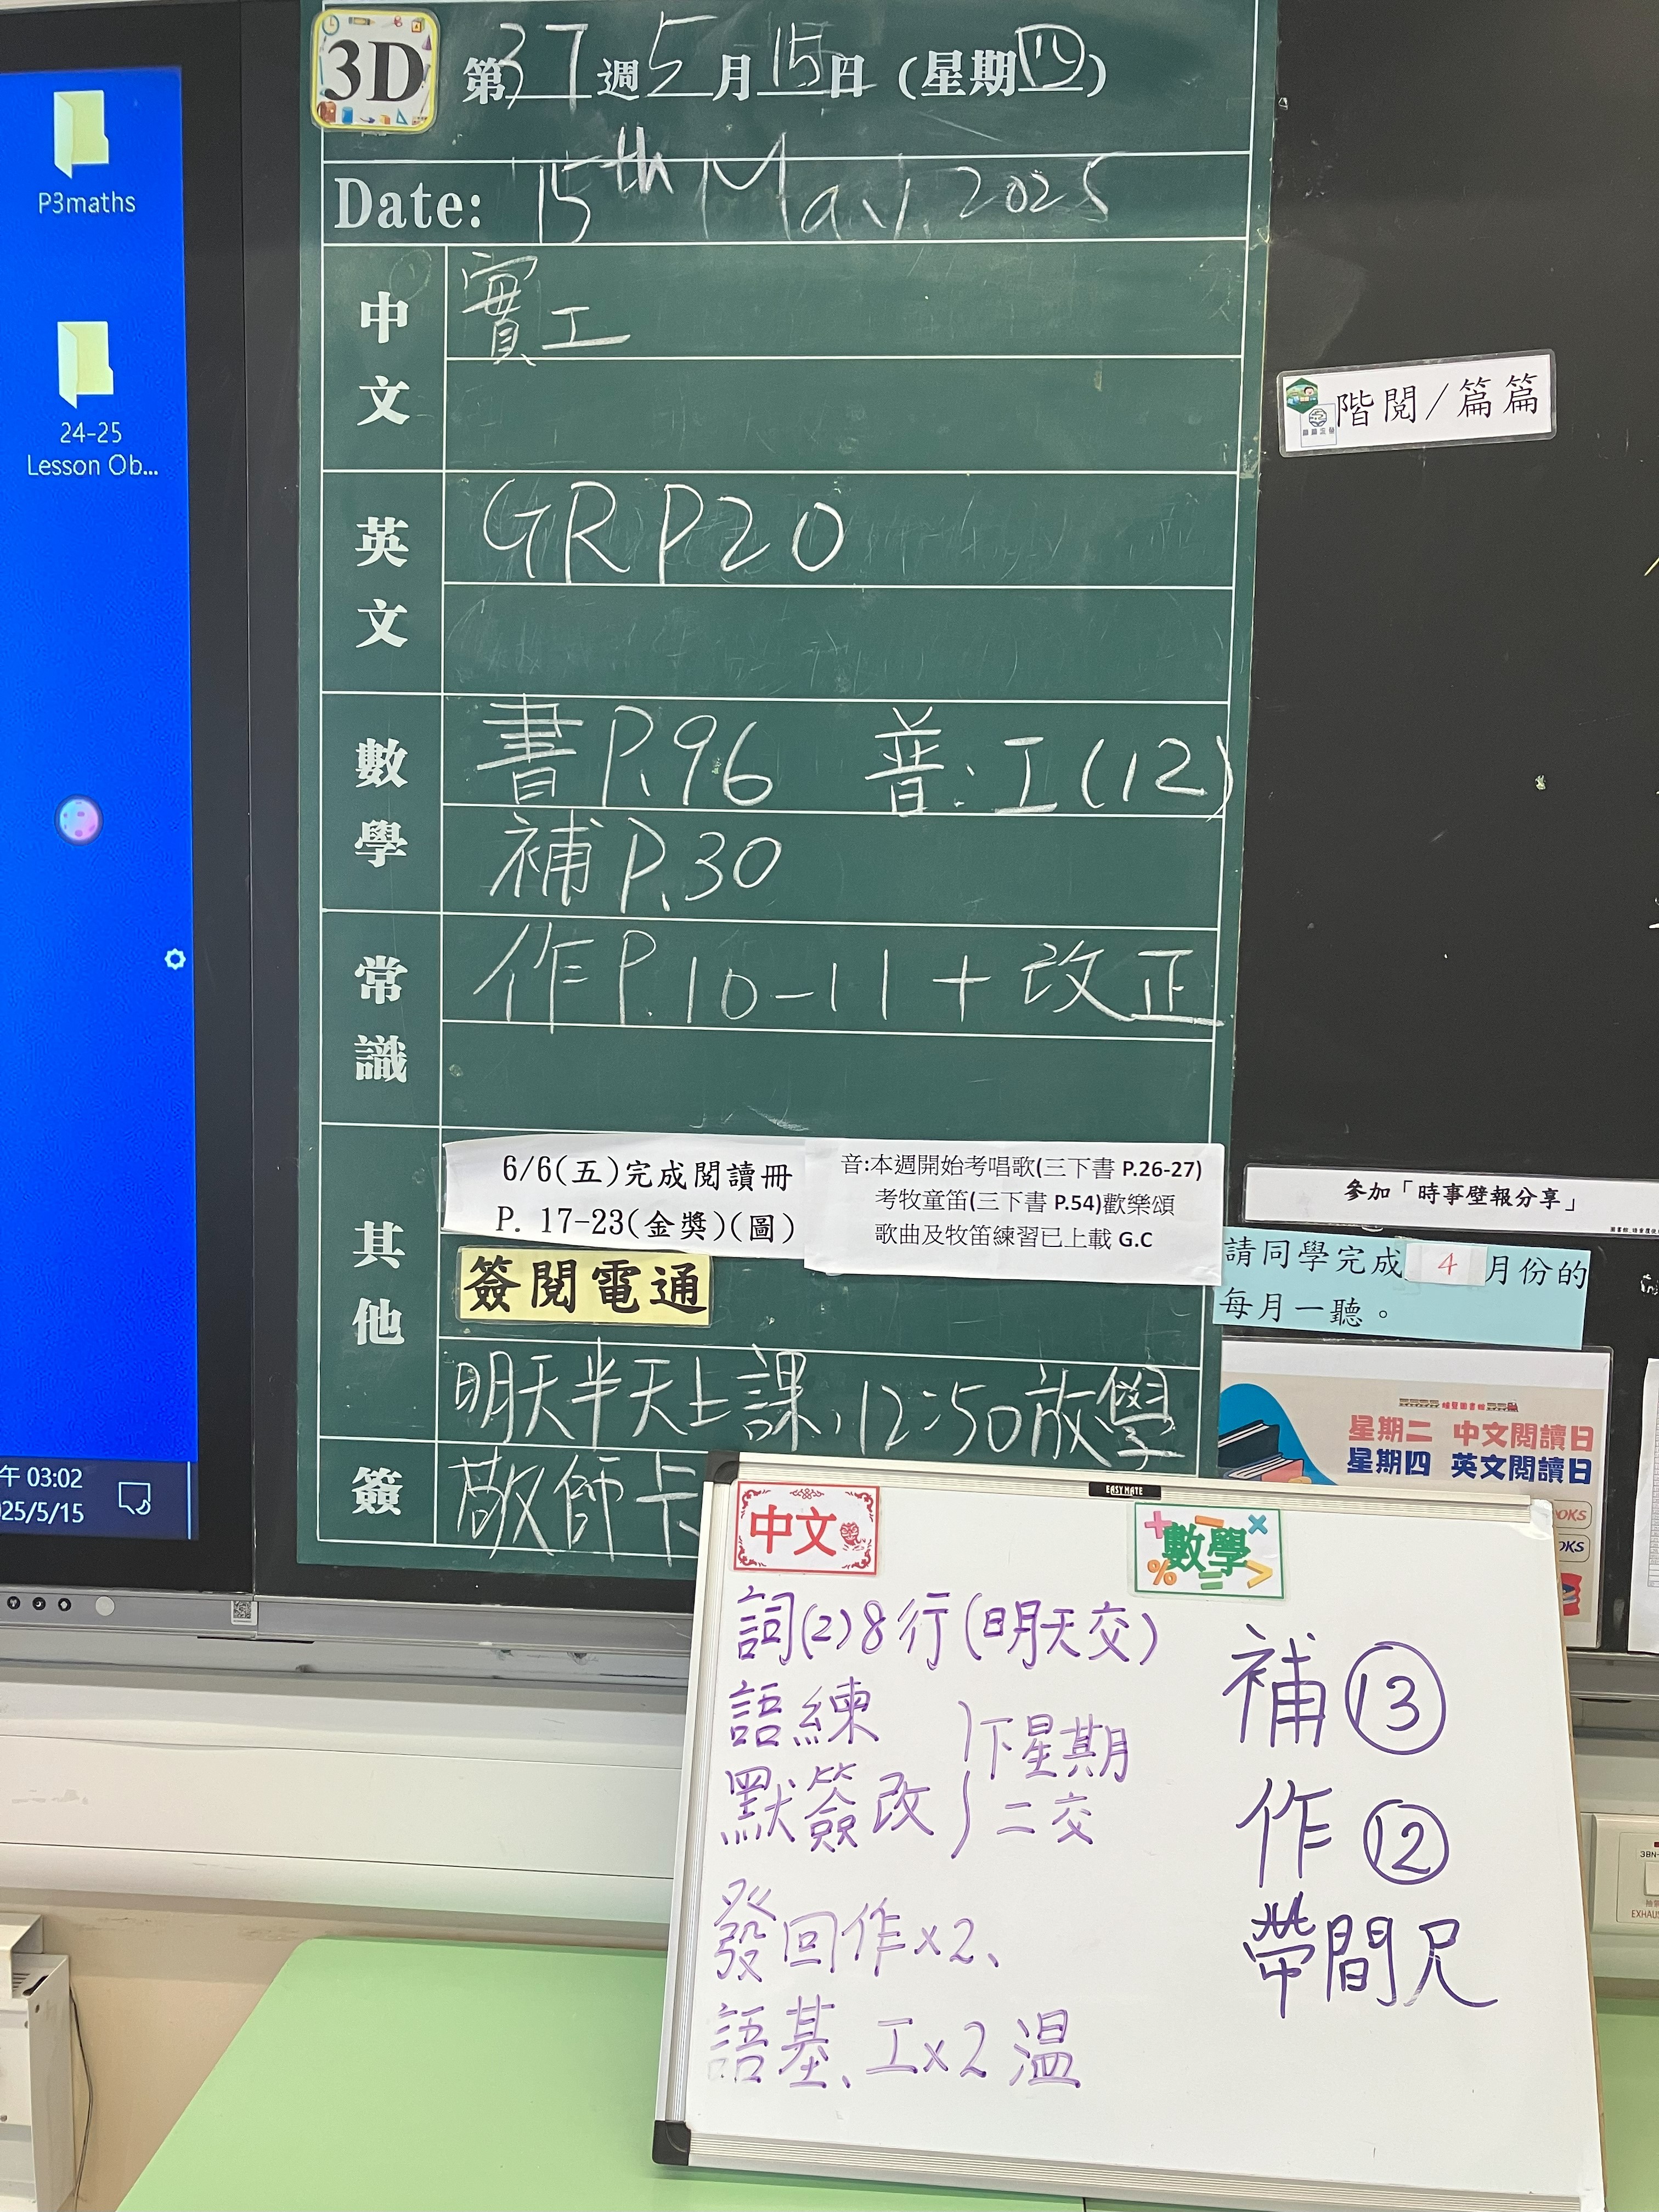 3D 第37週5月15日(星期四)
Date: 15th May 2025
中文
實工
英文
GR P20
數學
書 P.96 普:工(12)
補 P.30
常識
作 P.10-11 + 改正
其他
6/6(五)完成閱讀冊
P. 17-23(金獎)(圖)
音:本週開始考唱歌(三下書 P.26-27)
考牧童笛(三下書 P.54)歡樂頌
歌曲及牧笛練習已上載 G.C
簽閱電通
明天半天上課,12:50放學
簽
敬師卡
中文
詞(2)8行(明天交)
語練
默簽改
下星期
二交
發回作x2、
語基、工x2 溫
數學
補⑬
作⑫
帶間尺
EASYMATE
階閱/篇篇
參加「時事壁報分享」
請同學完成 4 月份的
每月一聽。
星期二 中文閱讀日
星期四 英文閱讀日
OKS
OKS
P3maths
24-25
Lesson Ob...
午 03:02
25/5/15
3BN-
EXHAUS